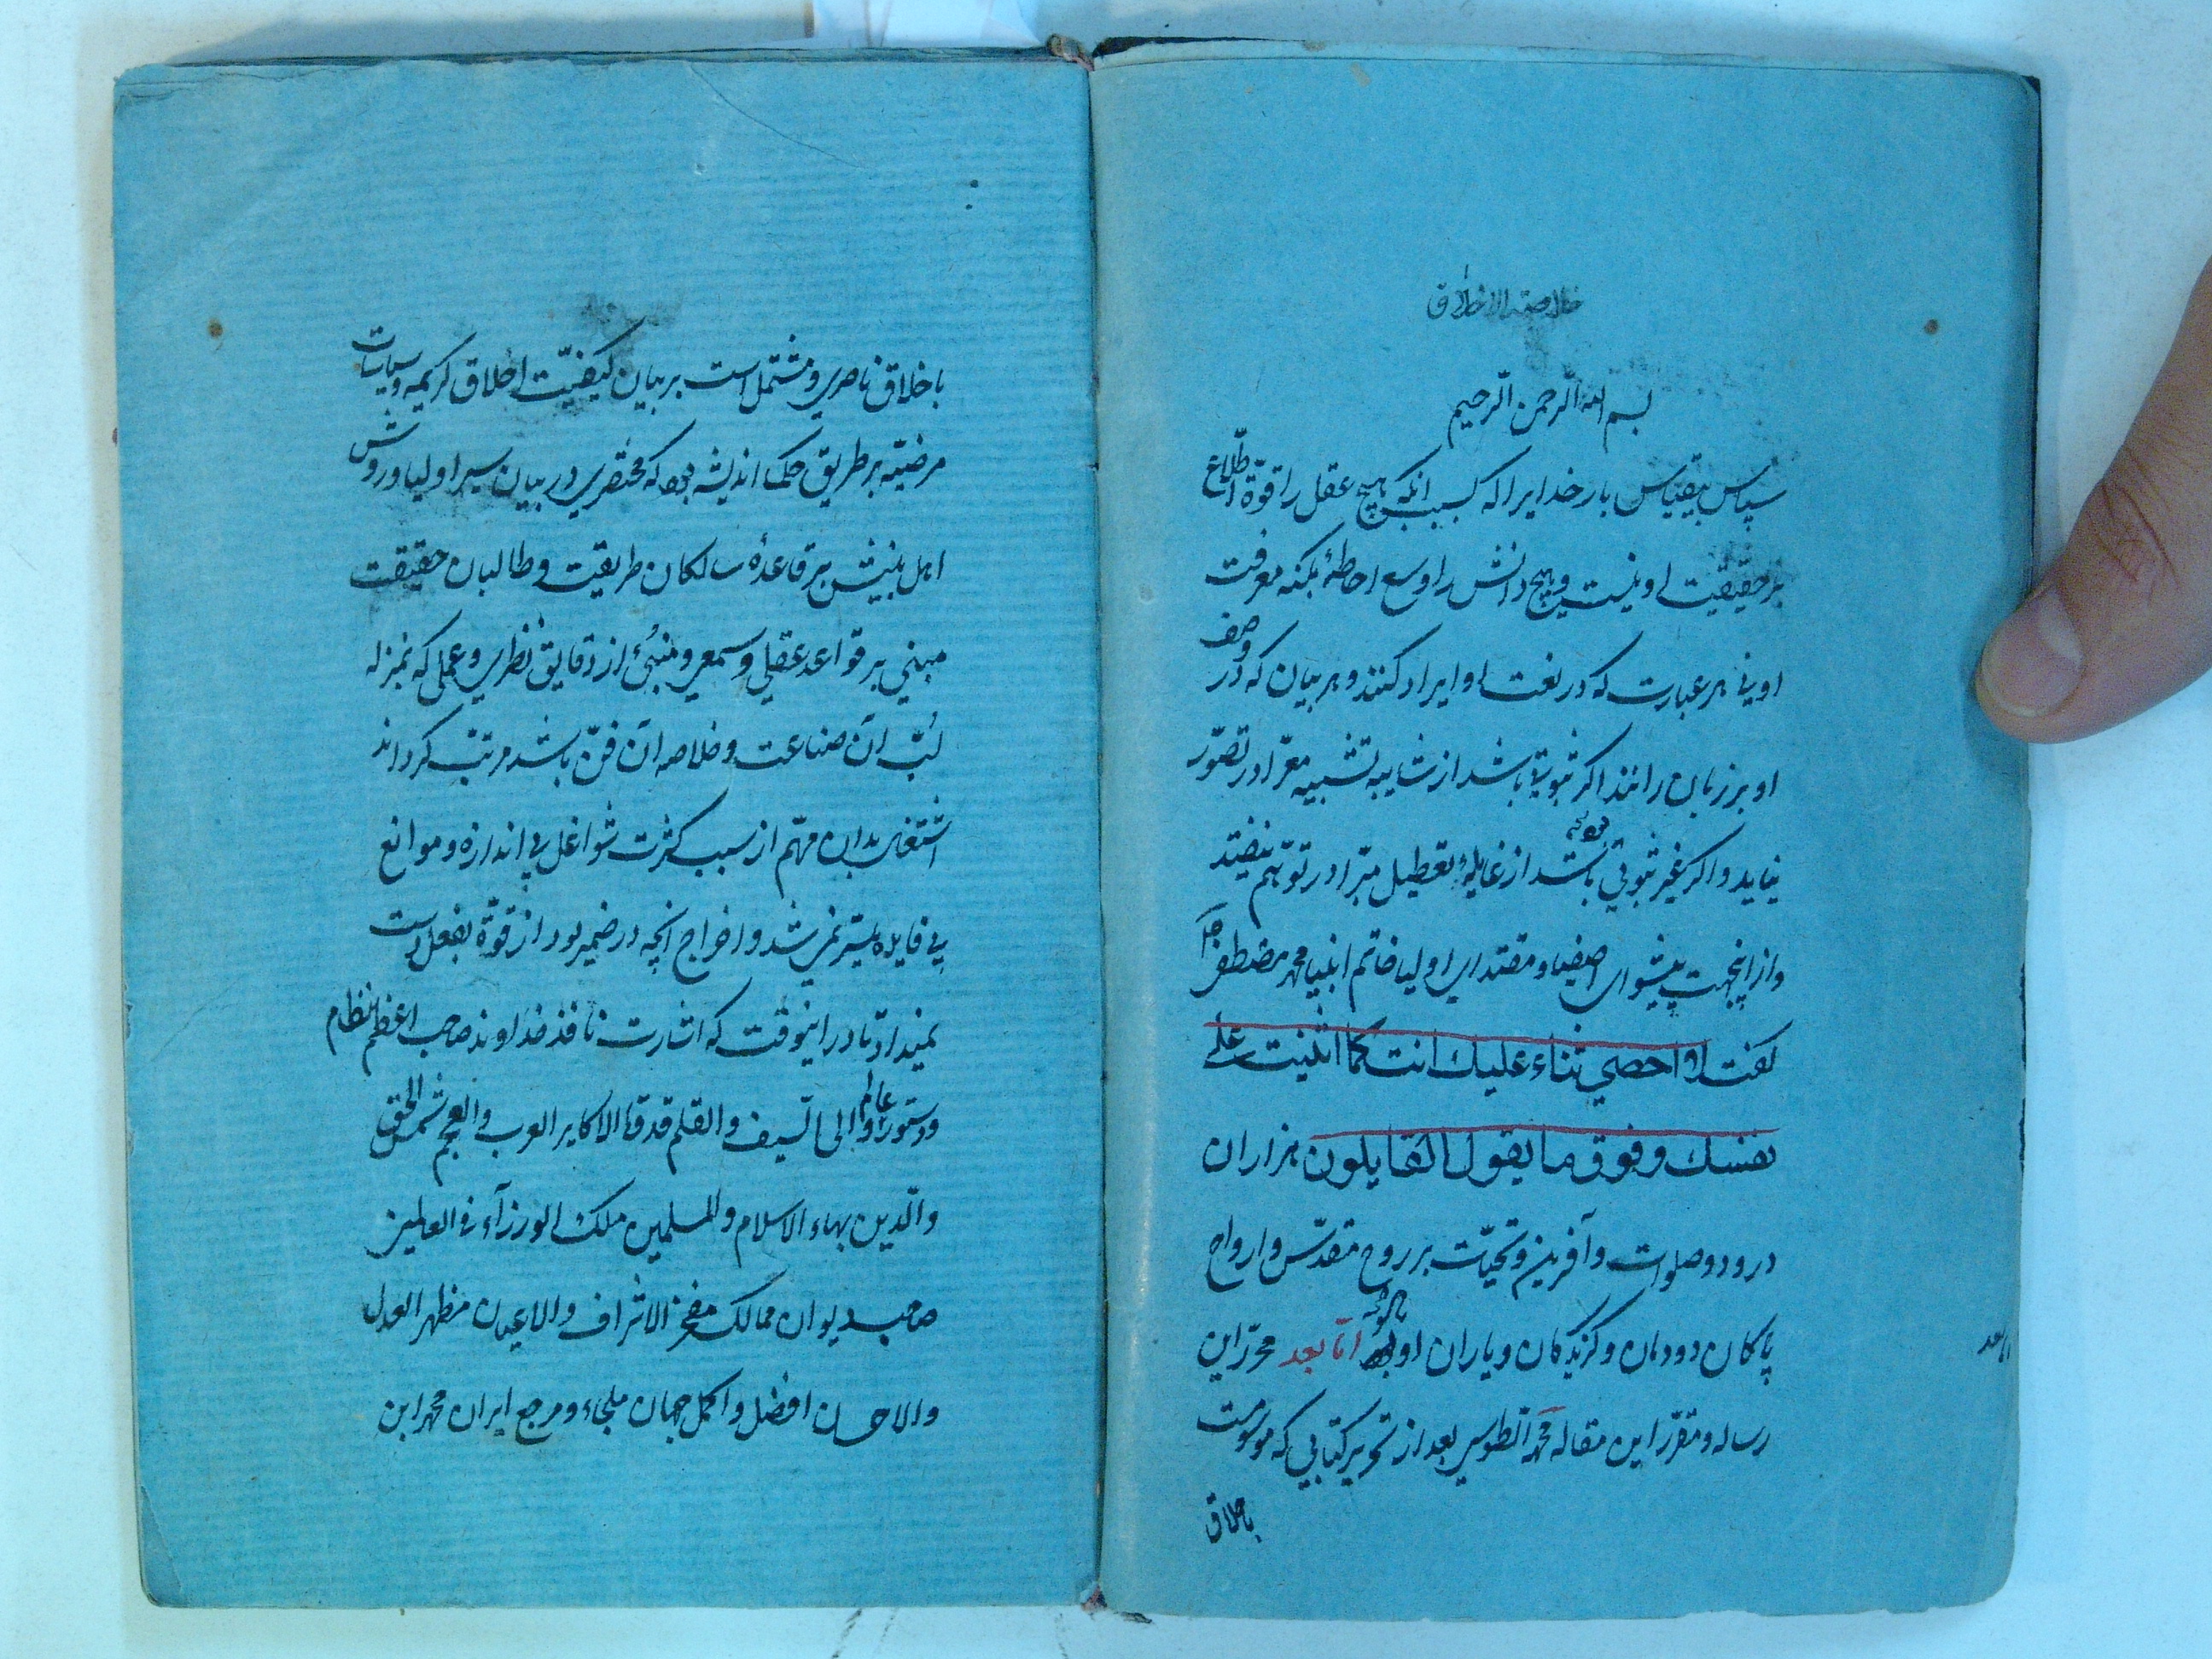 خلاصة الاخلاق
بسم الله الرحمن الرحيم
سپاس بیقیاس بار خدایرا که بسبب انکه هیچ عقل را قوّة اطّلاع
بر حقیقت او نیست و هیچ دانش را وسع احاطهٔ بکنه معرفت
او نی هر عبارت که در نعت او ایراد کنند و هر بیان که در وصف
او بر زبان رانند اکر ثبوتی باشد از شایبه تشبیه معرّا در تصوّر
نیاید و اکر غیر ثبوتی باشد از غایلهٔ تعطیل مبرّا در توهّم نیفتد
و از اینجهت پیشوای اصفیا و مقتدای اولیا خاتم انبیا محمد مصطفی
کفت لا احصي ثناء عليك انت كما اثنيت على
نفسك و فوق ما يقول القايلون هزاران
درود و صلوات و آفرین و تحیّت بر روح مقدّس و ارواح
پاکان دودمان و کزیدکان و یاران او اما بعد محرّر این
رساله و مقرّر این مقاله محمد الطوسی بعد از تحریر کتابی که موسومست
باخلاق
اما بعد
باخلاق ناصری و مشتمل است بر بیان کیفیّت اخلاق کریمه و سیاسات
مرضیّه بر طریق حکما اندیشه بود که مختصری در بیان سیر اولیا و روش
اهل بینش بر قاعدهٔ سالکان طریقت و طالبان حقیقت
مبنی بر قواعد عقلی و سمعی و منبئ از دقایق نظری و عملی که بمنزله
لبّ آن صناعت و خلاصه آن فنّ باشد مرتّب کرداند
اشتغال بدان مهم از سبب کثرت شواغل بی اندازه و موانع
بی فایده میسّر نمی شد و اخراج انچه در ضمیر بود از قوّة بفعل دست
نمیداد تا در اینوقت که اشارت نافذ خداوند صاحب اعظم نظام
و دستور عالم والی السّیف و القلم قدوة الاکابر العرب و العجم شمس الحق
و الدّین بهاء الاسلام و المسلمین ملك الوزرآء فی العالمین
صاحب دیوان ممالک مفخر الاشراف و الاعیان مظهر العدل
و الاحسان افضل و اکمل جهان ملجاء و مرجع ایران محمد ابن